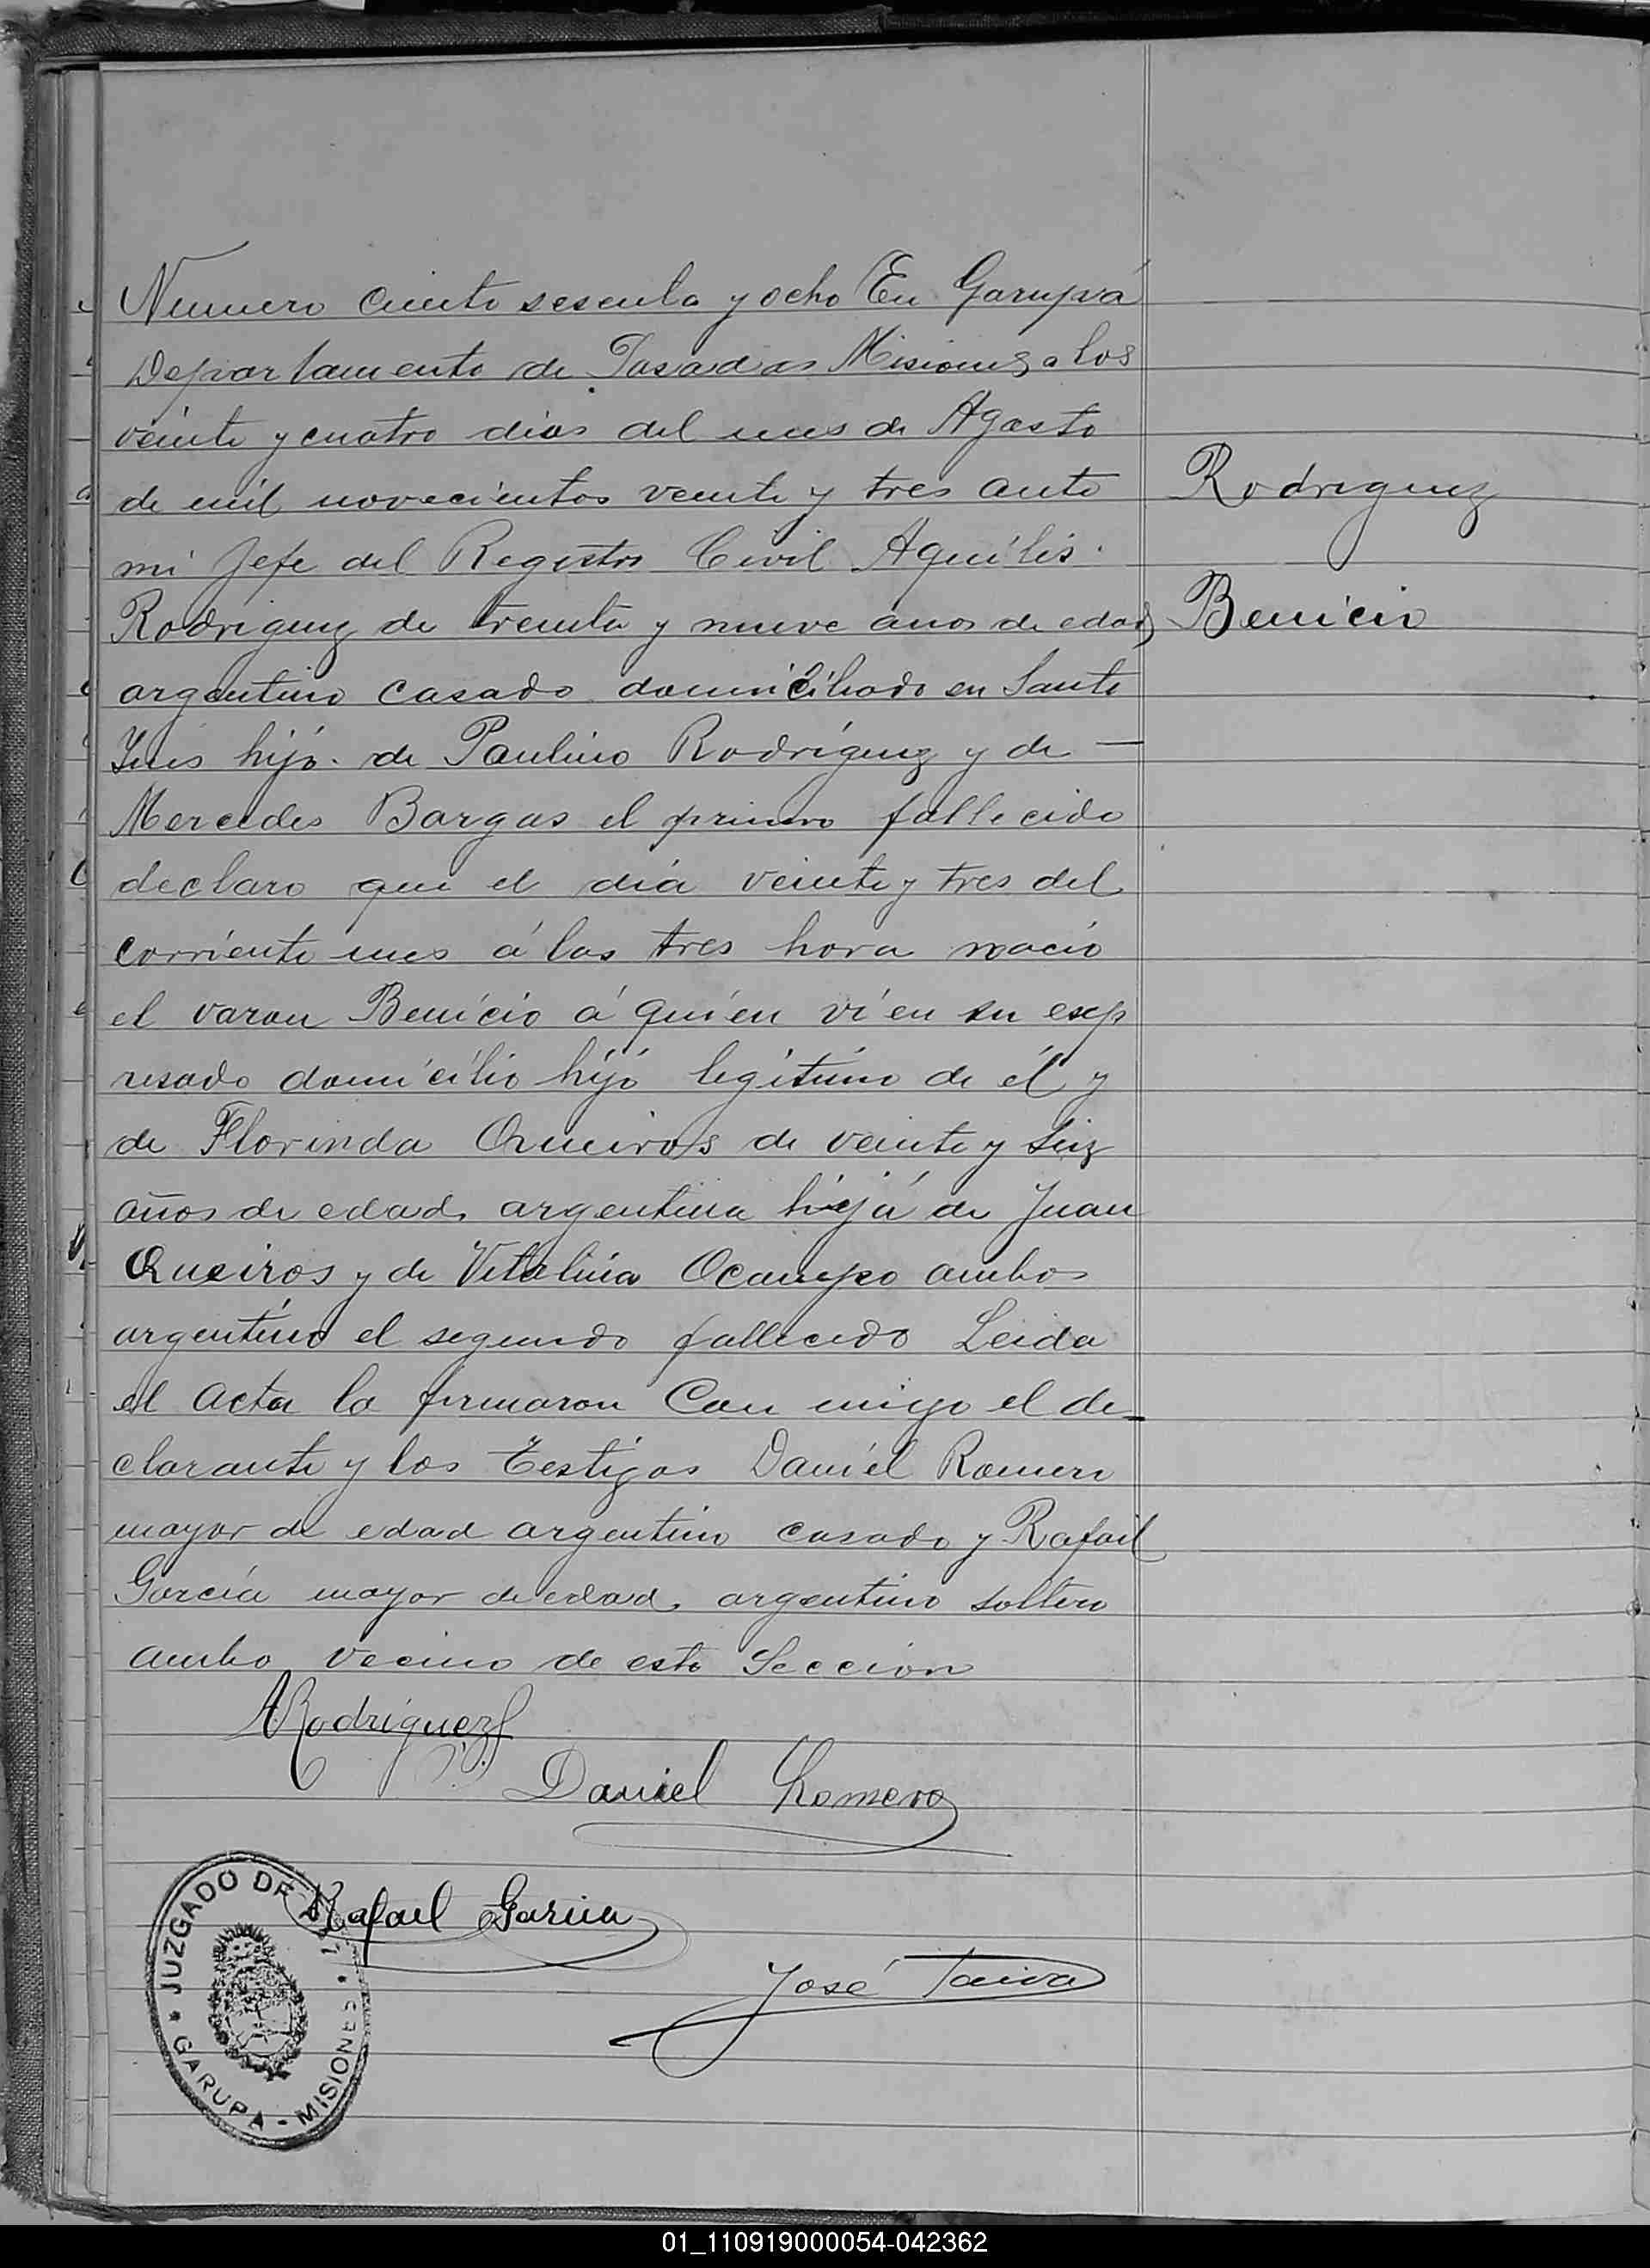 Numero ciento sesenta y ocho En Garupá
Departamento de Posadas Misiones a los
veinte y cuatro dias del mes de Agosto
de mil novecientos veinte y tres ante
mi Jefe del Registro Civil Aquilis
Rodriguez de treinta y nueve años de edad
argentino casado domiciliado en Santa
Inés hijo de Paulino Rodríguez y de —
Mercedes Bargas el primero fallecido
declaro que el día veinte y tres del
corriente mes á las tres hora nacio
el varon Benicio á quien ví en su exp
resado domicilio hijo legitimo de él y
de Florinda Queiros de veinte y seiz
años de edad argentina hija de Juan
Queiros y de Vitalina Ocampo ambos
argentino el segundo fallecido Leida
el acta la firmaron Con migo el de-
clarante y los Testigos Daniel Romero
mayor de edad argentino casado y Rafael
García mayor de edad argentino soltero
ambo vecino de esta Seccion
Rodriguez
Benicio
ARodriguez
Daniel Romero
Rafael Garcia
José
JUZGADO DE PAZ
* GARUPA - MISIONES *
01_110919000054-042362